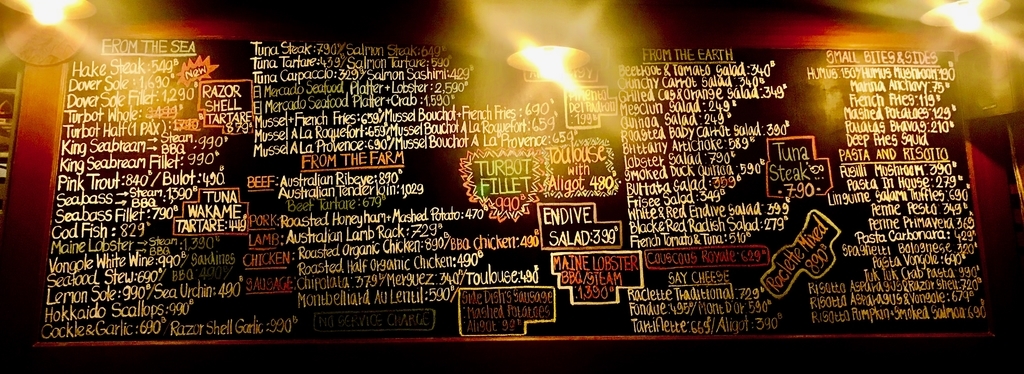 FROM THE SEA
Hake Steak: 549฿
Dover Sole: 1,690
Dover Sole Fillet:
Turbot Whole:
Turbot Half (1 PAX):
King Seabream → BBQ 990฿
King Seabream Fillet: 990฿
Pink Trout: 840/ Bulot: 490฿
Seabass → Steam 1,390฿
→ BBQ
Seabass Fillet: 790/
Cod Fish: 829฿
Maine Lobster → Steam: 1,390
Vongole White Wine: 990฿/ Sardines
Seafood Stew: 690฿/ BBQ 490฿
Lemon Sole: 990฿/ Sea Urchin: 490฿
Hokkaido Scallops: 990
Cockle & Garlic: 690฿ Razor Shell Garlic: 990฿
New
RAZOR
SHELL
TARTARE
679฿
TUNA
WAKAME
TARTARE: 449
Tuna Steak: 790฿/ Salmon Steak: 649฿
Tuna Tartare: 439/ Salmon Tartare: 590฿
Tuna Carpaccio: 329/ Salmon Sashimi: 429฿
El Mercado Seafood Platter + Lobster: 2,590฿
El Mercado Seafood Platter + Crab: 1,590฿
Mussel + French Fries: 690฿/ Mussel Bouchot + French Fries: 690฿
Mussel A La Roquefort: 659฿/ Mussel Bouchot A La Roquefort: 659฿
Mussel A La Provence: 659฿/ Mussel Bouchot A La Provence: 659฿
FROM THE FARM
BEEF: Australian Ribeye: 890฿
Australian Tenderloin: 1029
Beef Tartare: 679฿
PORK: Roasted Honey ham + Mashed Potato: 470฿
LAMB: Australian Lamb Rack: 729฿
CHICKEN: Roasted Organic Chicken: 890฿/ BBQ Chicken: 490฿
Roasted Half Organic Chicken: 490฿
SAUSAGE: Chipolata: 379฿/ Merguez: 340฿/ Toulouse: 490฿
Montbelliard Au Lentil: 590฿/
NO SERVICE CHARGE
TURBOT
FILLET
990฿
Toulouse
with
Aligot 480฿
ENDIVE
SALAD: 399฿
MAINE LOBSTER
BBQ/STEAM
1,390฿
Side Dish's Sausage
: Mashed Potatoes
: Aligot
FROM THE EARTH
Beetroot & Tomato Salad: 340฿
Crunchy Carrot Salad: 340฿
Salad: 349฿
Mesclun Salad: 249฿
Quinoa Salad: 249฿
Roasted Baby Carrot Salad: 390฿
Brittany Artichoke: 589฿
Lobster Salad: 790฿
Smoked Duck Quinoa: 590฿
Burrata Salad: 359฿
Frisee Salad: 349฿
White & Red Endive Salad: 399฿
Black & Red Radish Salad: 279
French Tomato & Tuna: 510฿
Couscous Royale: 629฿
SAY CHEESE
Raclette Traditional: 729฿
Fondue: 495฿/ Mont D'or: 590฿
Tartiflette: 665฿/ Aligot: 390฿
Tuna
Steak
790฿
Raclette Mixed
890฿
SMALL BITES & SIDES
Humus 150฿/ Humus Mushroom 190
Marina Anchovy 75฿
French Fries: 119฿
Mashed Potatoes: 129฿
Patatas Bravas: 210฿
Deep Fries Squid
PASTA AND RISOTTO
Fusilli Mushroom: 390฿
Pasta In House: 279฿
Linguine Salami Truffles: 690฿
Penne Pesto: 349฿
Penne Primavera: 369฿
Pasta Carbonara: 429฿
Spaghetti Bolognese: 320฿
Pasta Vongole: 640฿
Tuk Tuk Crab Pasta: 990฿
Risotto Asparagus & Vongole: 679฿
Risotto Pumpkin + Smoked Salmon 690฿